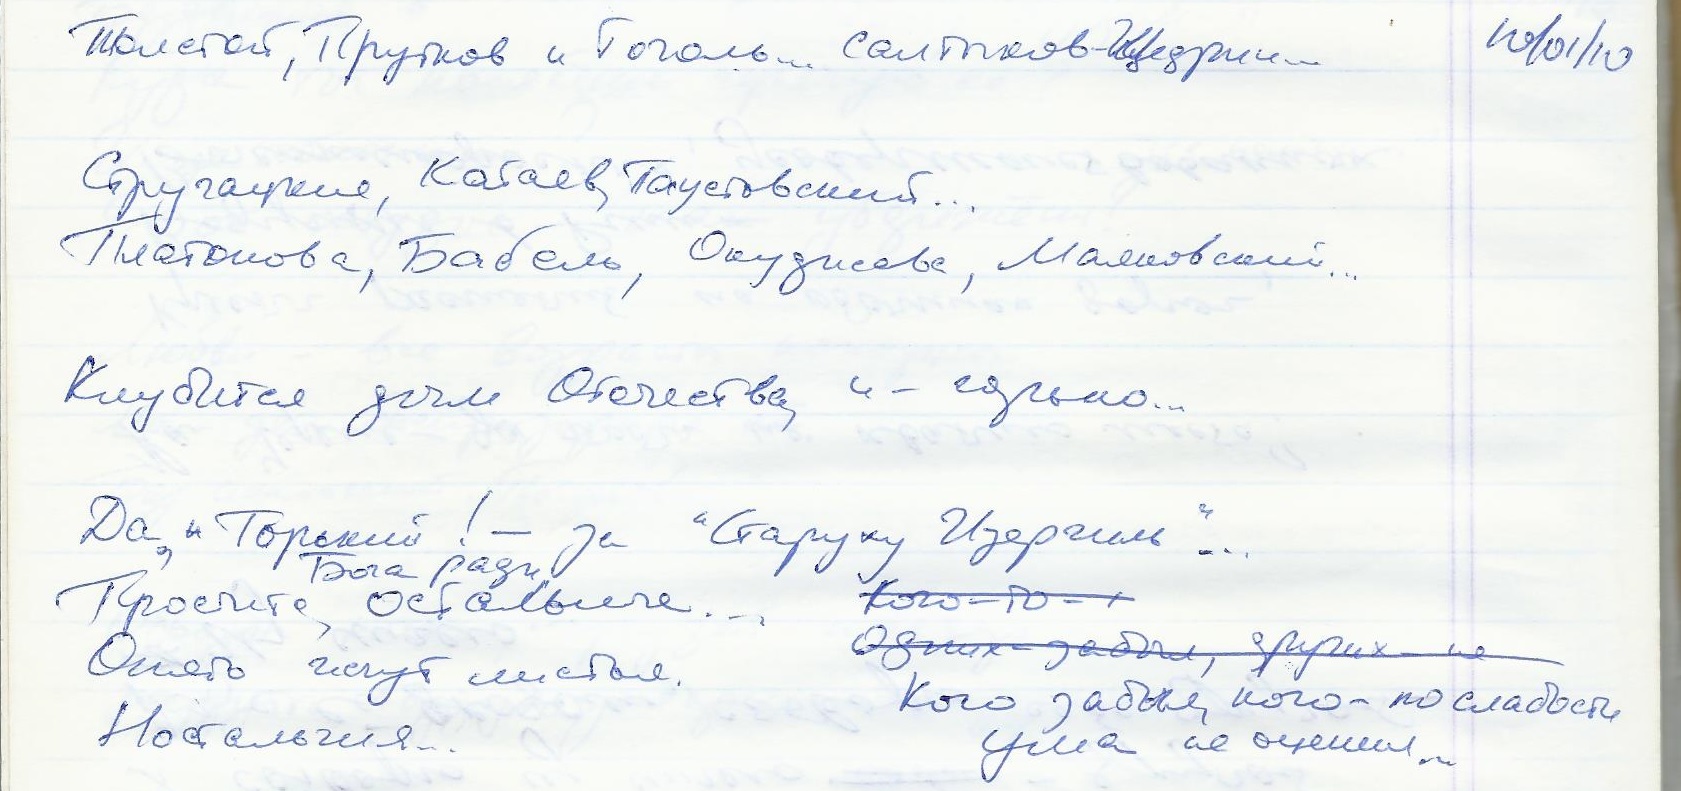 Толстой, Прутков и Гоголь... Салтыков-Щедрин... 10/01/10
Стругацкие, Катаев, Паустовский...
Платонова, Бабель, Окуджава, Маяковский...
Клубится дым Отечества, и – горько...
Да, и Горький! – за "Старуху Изергиль"...
Бога ради
Простите, остальные...
Опять жгут листья.
Ностальгия...
Кого-то -
Одних забыл, других - не
Кого забыл, кого - по слабости
ума не оценил...